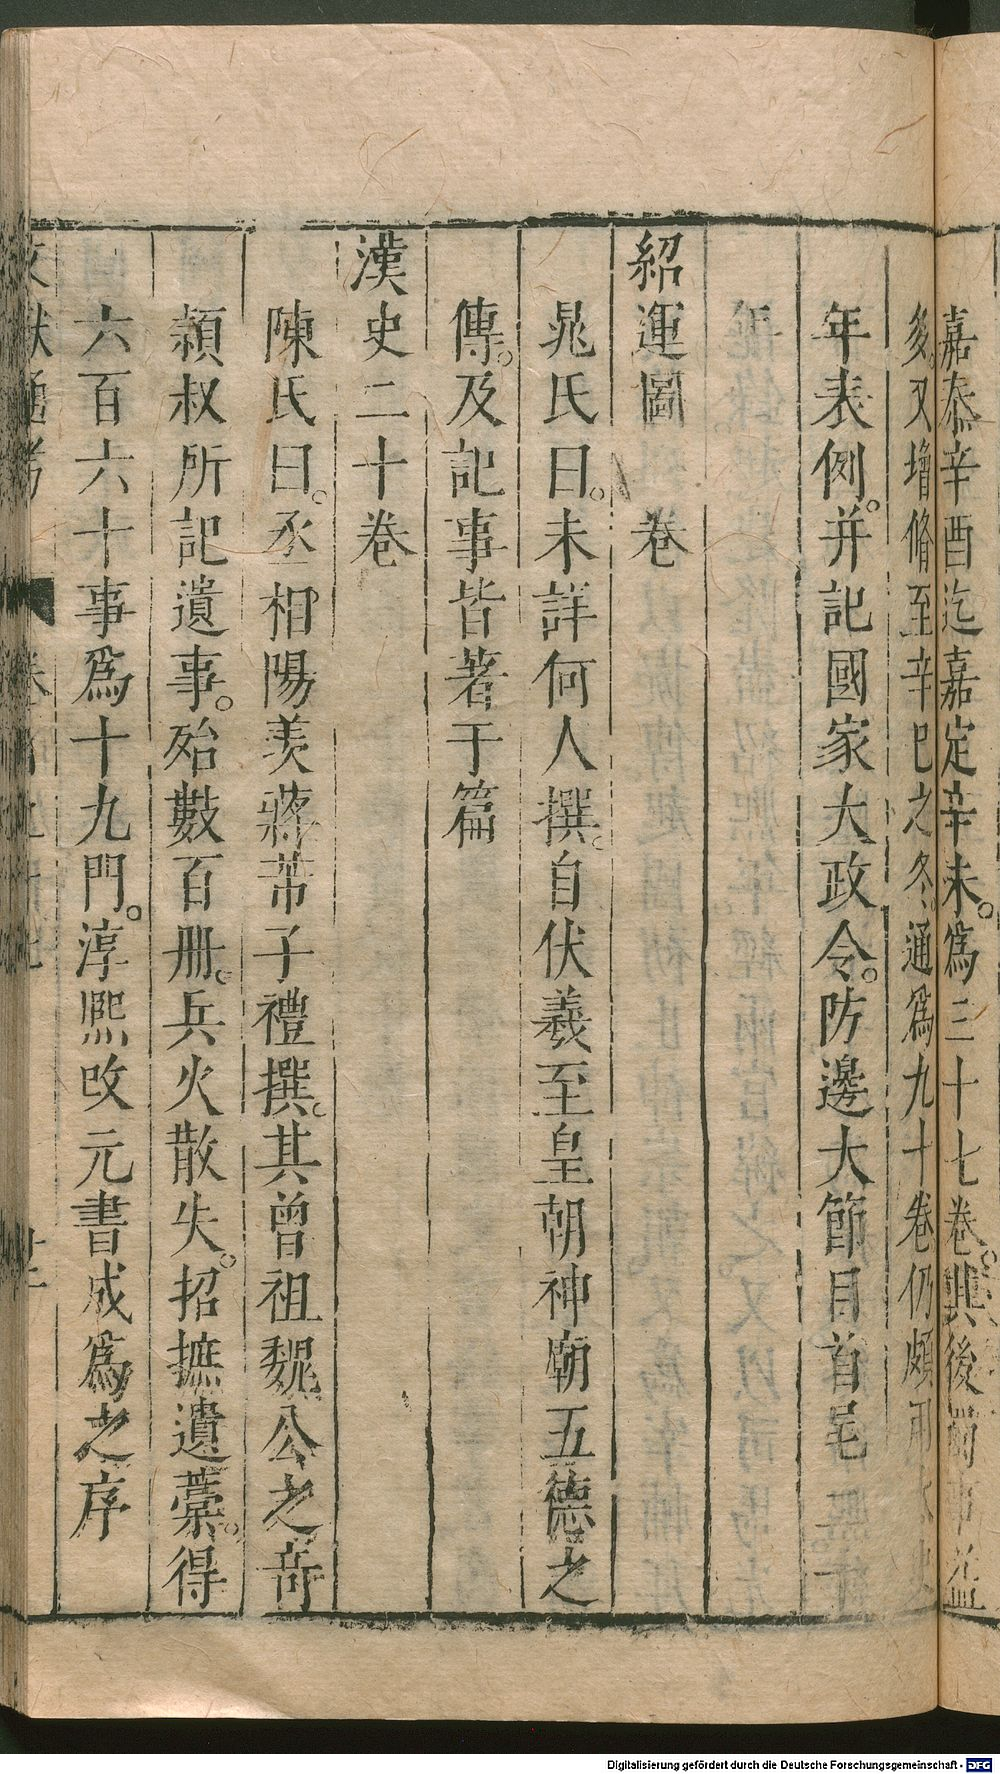 嘉泰辛酉迄嘉定辛未。爲三十七卷。其後
多。又增脩至辛巳之冬。通爲九十卷仍頗用太史
年表例。并記國家大政令。防邊大節目首尾
紹運圖　卷
晁氏曰。未詳何人撰。自伏羲至皇朝神廟五德之
傳。及記事皆著于篇
漢史二十卷
陳氏曰。丞相陽羡蔣芾子禮撰。其曾祖魏公之奇
穎叔所記遺事。殆數百冊。兵火散失。招摭遺藁。得
六百六十事爲十九門。淳熙改元書成爲之序
文獻通考
Digitalisierung gefördert durch die Deutsche Forschungsgemeinschaft - DFG